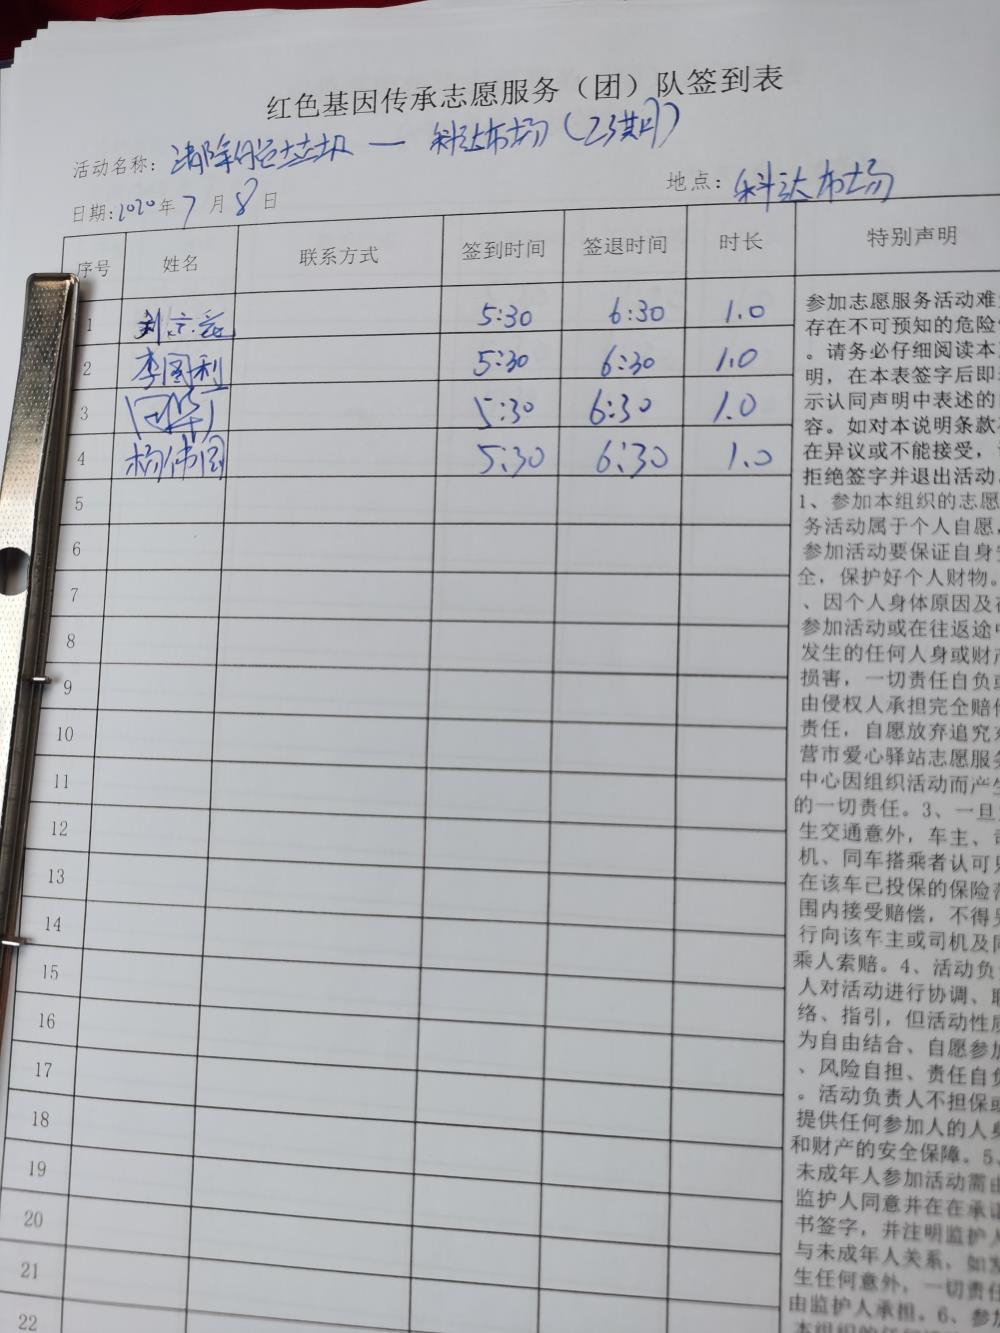 红色基因传承志愿服务（团）队签到表
活动名称：清除白色垃圾 — 科达市场（23期）
日期:2020年7月8日 地点：科达市场
序号 姓名 联系方式 签到时间 签退时间 时长 特别声明
1 5:30 6:30 1.0
2 李图利 5:30 6:30 1.0
3 5:30 6:30 1.0
4 杨伟国 5:30 6:30 1.0
5
6
7
8
9
10
11
12
13
14
15
16
17
18
19
20
21
22
参加志愿服务活动难
存在不可预知的危险
。请务必仔细阅读本
明，在本表签字后即
示认同声明中表述的
容。如对本说明条款
在异议或不能接受，
拒绝签字并退出活动
1、参加本组织的志愿
务活动属于个人自愿，
参加活动要保证自身
全，保护好个人财物。
、因个人身体原因及
参加活动或在往返途
发生的任何人身或财产
损害，一切责任自负
由侵权人承担完全赔
责任，自愿放弃追究
营市爱心驿站志愿服务
中心因组织活动而产生
的一切责任。3、一旦
生交通意外，车主、
机、同车搭乘者认可
在该车已投保的保险
围内接受赔偿，不得
行向该车主或司机及同
乘人索赔。4、活动负
人对活动进行协调、
络、指引，但活动性质
为自由结合、自愿参加
、风险自担、责任自负
。活动负责人不担保
提供任何参加人的人身
和财产的安全保障。5、
未成年人参加活动需由
监护人同意并在在承
书签字，并注明监护人
与未成年人关系，如发
生任何意外，一切责任
由监护人承担。6、参